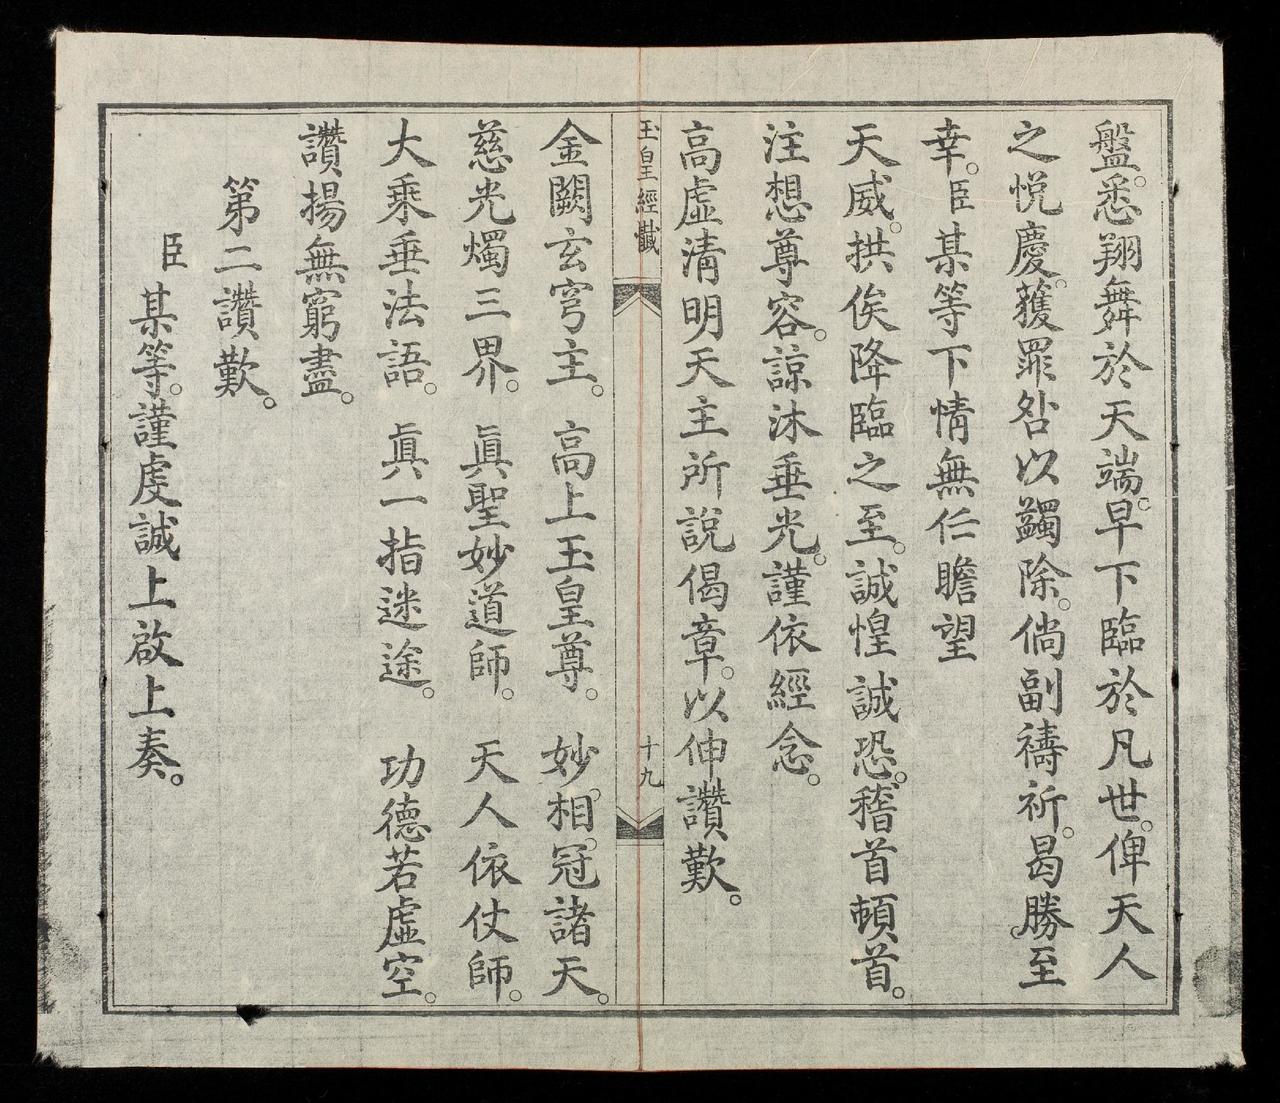 盤。悉翔舞於天端。早下臨於凡世。俾天人
之悅慶。獲罪咎以蠲除。倘副禱祈。曷勝至
幸。臣某等下情無任瞻望
天威。拱俟降臨之至。誠惶誠恐。稽首頓首。
注想尊容。諒沐垂光。謹依經念。
高虛清明天主所說偈章。以伸讚歎。
玉皇經懺
十九
金闕玄穹主。高上玉皇尊。妙相。冠諸天。
慈光燭三界。真聖妙道師。天人依仗師。
大乘垂法語。真一指迷途。功德若虛空。
讚揚無窮盡。
第二讚歎。
臣某等。謹虔誠上啟上奏。